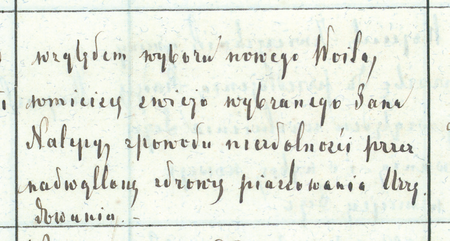 względem wyboru nowego Wojta,
wmiejscy zwiejo wybranego Jana
Nalepy, zpowodu niezdolności przez
nadwątlony zdrowy piastowania Urzę
dowania.